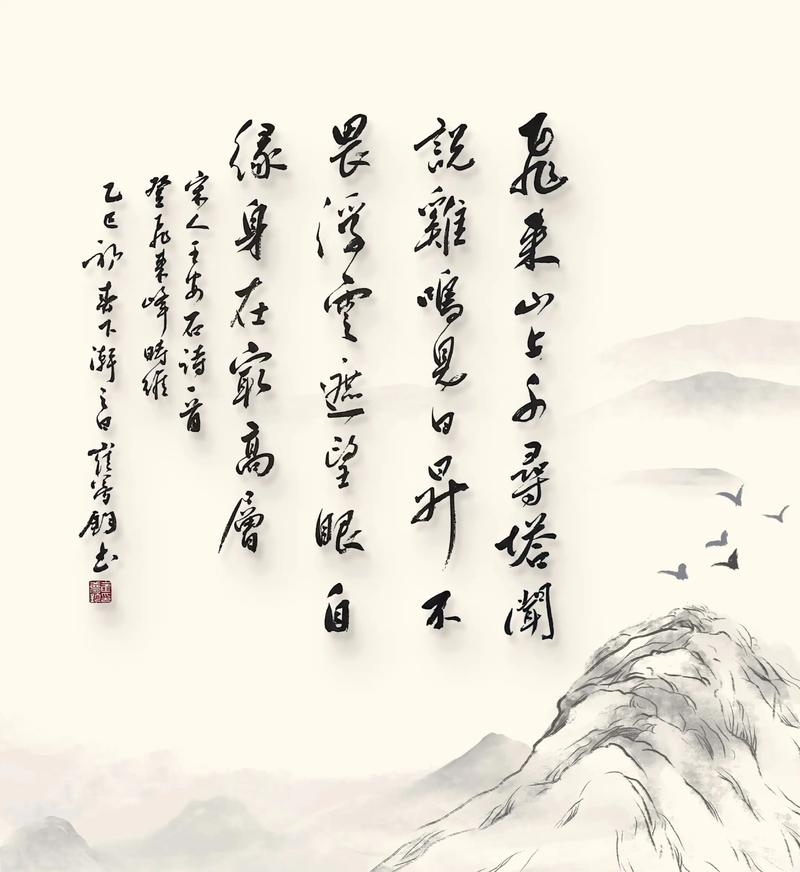 飛來山上千尋塔聞
說雞鳴見日昇不
畏浮雲遮望眼自
緣身在最高層
宋人王安石詩一首
登飛來峰時維
乙巳初春下澣之日崔書